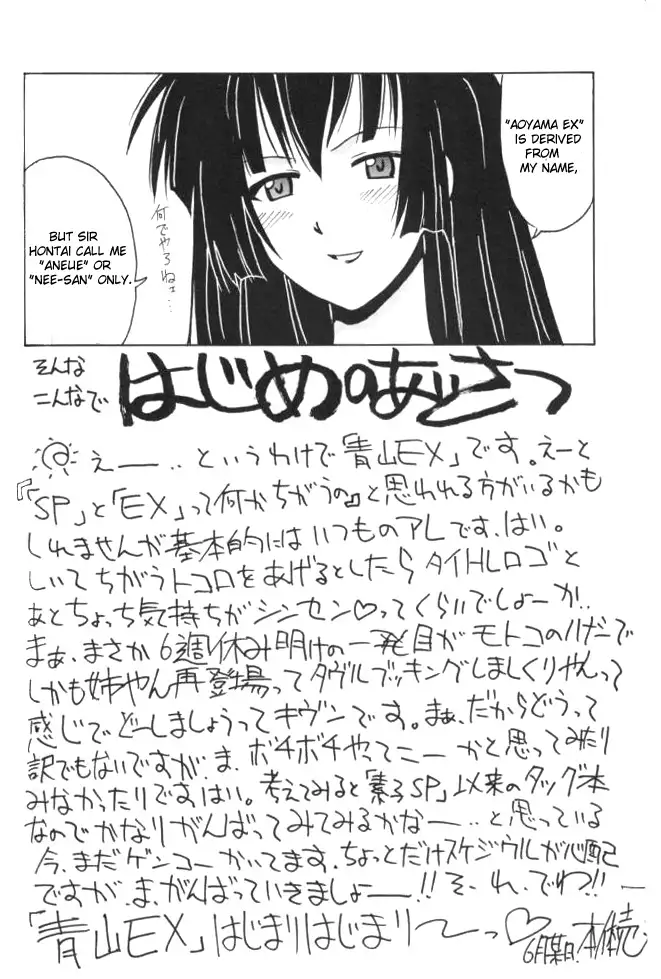 "AOYAMA EX"
IS DERIVED
FROM
MY NAME,
BUT SIR
HONTAI CALL ME
"ANEUE" OR
"NEE-SAN" ONLY.
何でやろねェ…
そんな
こんなで
はじめのあいさつ
えー…というわけで「青山EX」です。えーと
『「SP」と「EX」って何かちがうの』と思われる方がいるかも
しれませんが基本的にはいつものアレです、はい。
しいてちがうトコロをあげるとしたらタイトルロゴと
あとちょっち気持ちがシンセン♡ってくらいでしょーか..
まぁ、まさか6週休み明けの一発目がモトコのハダーで
しかも姉やん再登場ってダヴルブッキングしましくりやんって
感じでどーしましょうってキヴンです。まぁ、だからどうって
訳でもないですが、ま、ボチボチやってこーかと思ってみたり
みなかったりですはい。考えてみると「素子SP」以来のタッグ本
なのでかなりがんばってみてみるかなー..と思っている
今、まだゲンコーかいてます、ちょっとだけスケジウルが心配
ですが、ま、がんばっていきましょー!!そ、れ、でわ!!
「青山EX」はじまりはじまり〜っ♡
6月某日、本体売